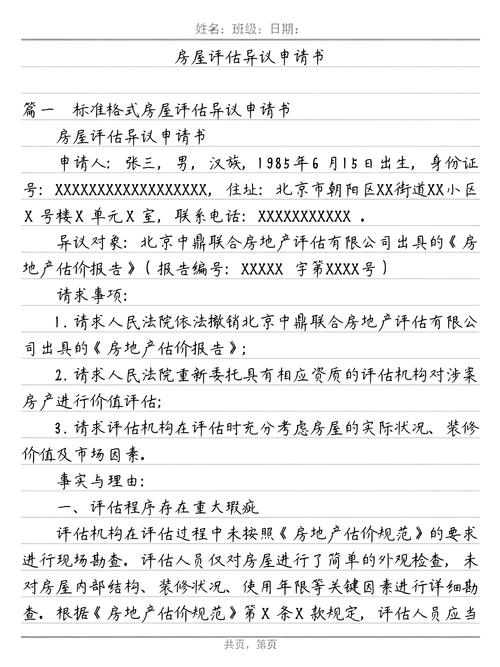 姓名：班级：日期：
房屋评估异议申请书
篇一 标准格式房屋评估异议申请书
房屋评估异议申请书
申请人：张三，男，汉族，1985年6月15日出生，身份证
号：XXXXXXXXXXXXXXXXXX，住址：北京市朝阳区XX街道XX小区
X号楼X单元X室，联系电话：XXXXXXXXXXX。
异议对象：北京中鼎联合房地产评估有限公司出具的《房
地产估价报告》（报告编号：XXXXX 字第XXXX号）
请求事项：
1.请求人民法院依法撤销北京中鼎联合房地产评估有限公
司出具的《房地产估价报告》；
2.请求人民法院重新委托具有相应资质的评估机构对涉案
房产进行价值评估；
3.请求评估机构在评估时充分考虑房屋的实际状况、装修
价值及市场因素。
事实与理由：
一、评估程序存在重大瑕疵
评估机构在评估过程中未按照《房地产估价规范》的要求
进行现场勘查。评估人员仅对房屋进行了简单的外观检查，未
对房屋内部结构、装修状况、使用年限等关键因素进行详细勘
查。根据《房地产估价规范》第X条X款规定，评估人员应当
共页，第页